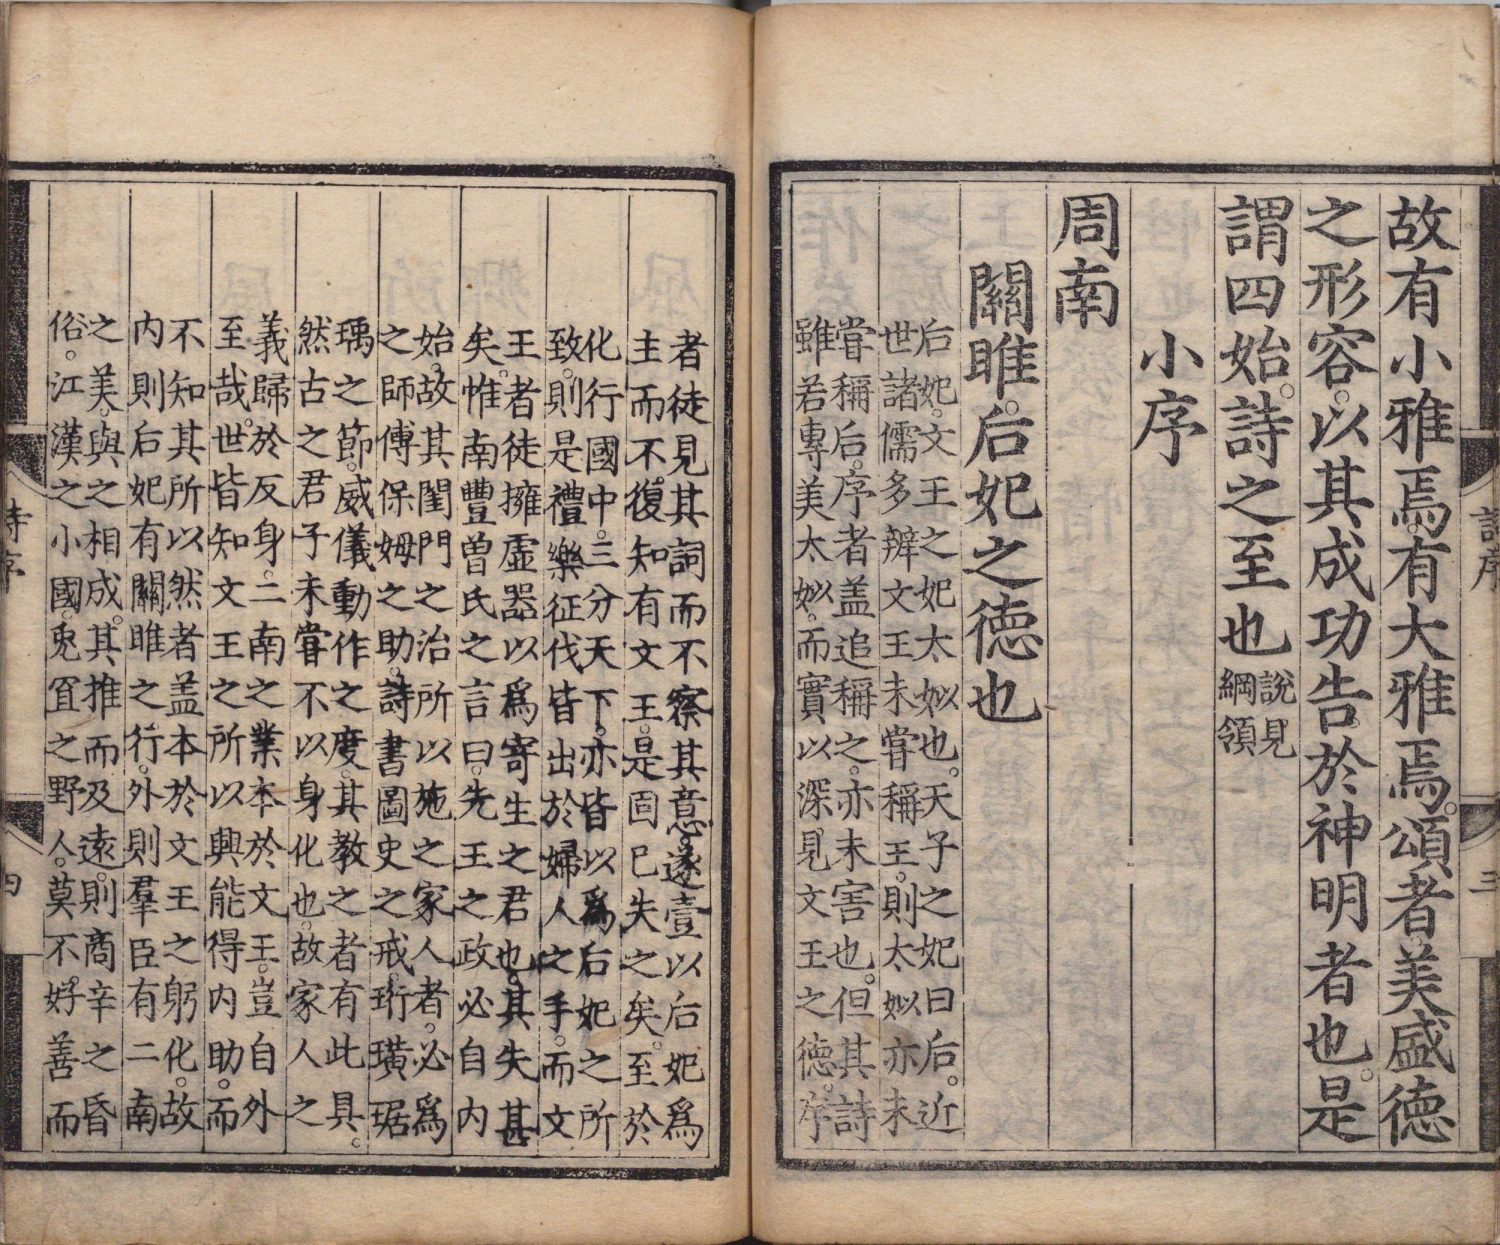 詩序 三
故有小雅焉。有大雅焉。頌者。美盛德
之形容。以其成功告於神明者也。是
謂四始。詩之至也
說見
綱領
小序
周南
關雎。后妃之德也
后妃。文王之妃太姒也。天子之妃曰后。近
世諸儒多辨文王未甞稱王。則太姒亦未
甞稱后。序者盖追稱之。亦未害也。但其詩
雖若專美太姒。而實以深見文王之德。序
者徒見其詞而不察其意。遂壹以后妃爲
主而不復知有文王。是固已失之矣。至於
化行國中。三分天下。亦皆以爲后妃之所
致。則是禮樂征伐皆出於婦人之手。而文
王者徒擁虛器以爲寄生之君也。其失甚
矣。惟南豐曾氏之言曰。先王之政必自内
始。故其閨門之治所以施之家人者。必爲
之師傅保姆之助。詩書圖史之戒。珩璜琚
瑀之節。威儀動作之度。其教之者有此具。
然古之君子未甞不以身化也。故家人之
義歸於反身。二南之業本於文王。豈自外
至哉。世皆知文王之所以興能得内助。而
不知其所以然者盖本於文王之躬化。故
内則后妃有關雎之行。外則羣臣有二南
之美。與之相成。其推而及遠。則商辛之昏
俗。江漢之小國。兎罝之野人。莫不好善而
詩序 四